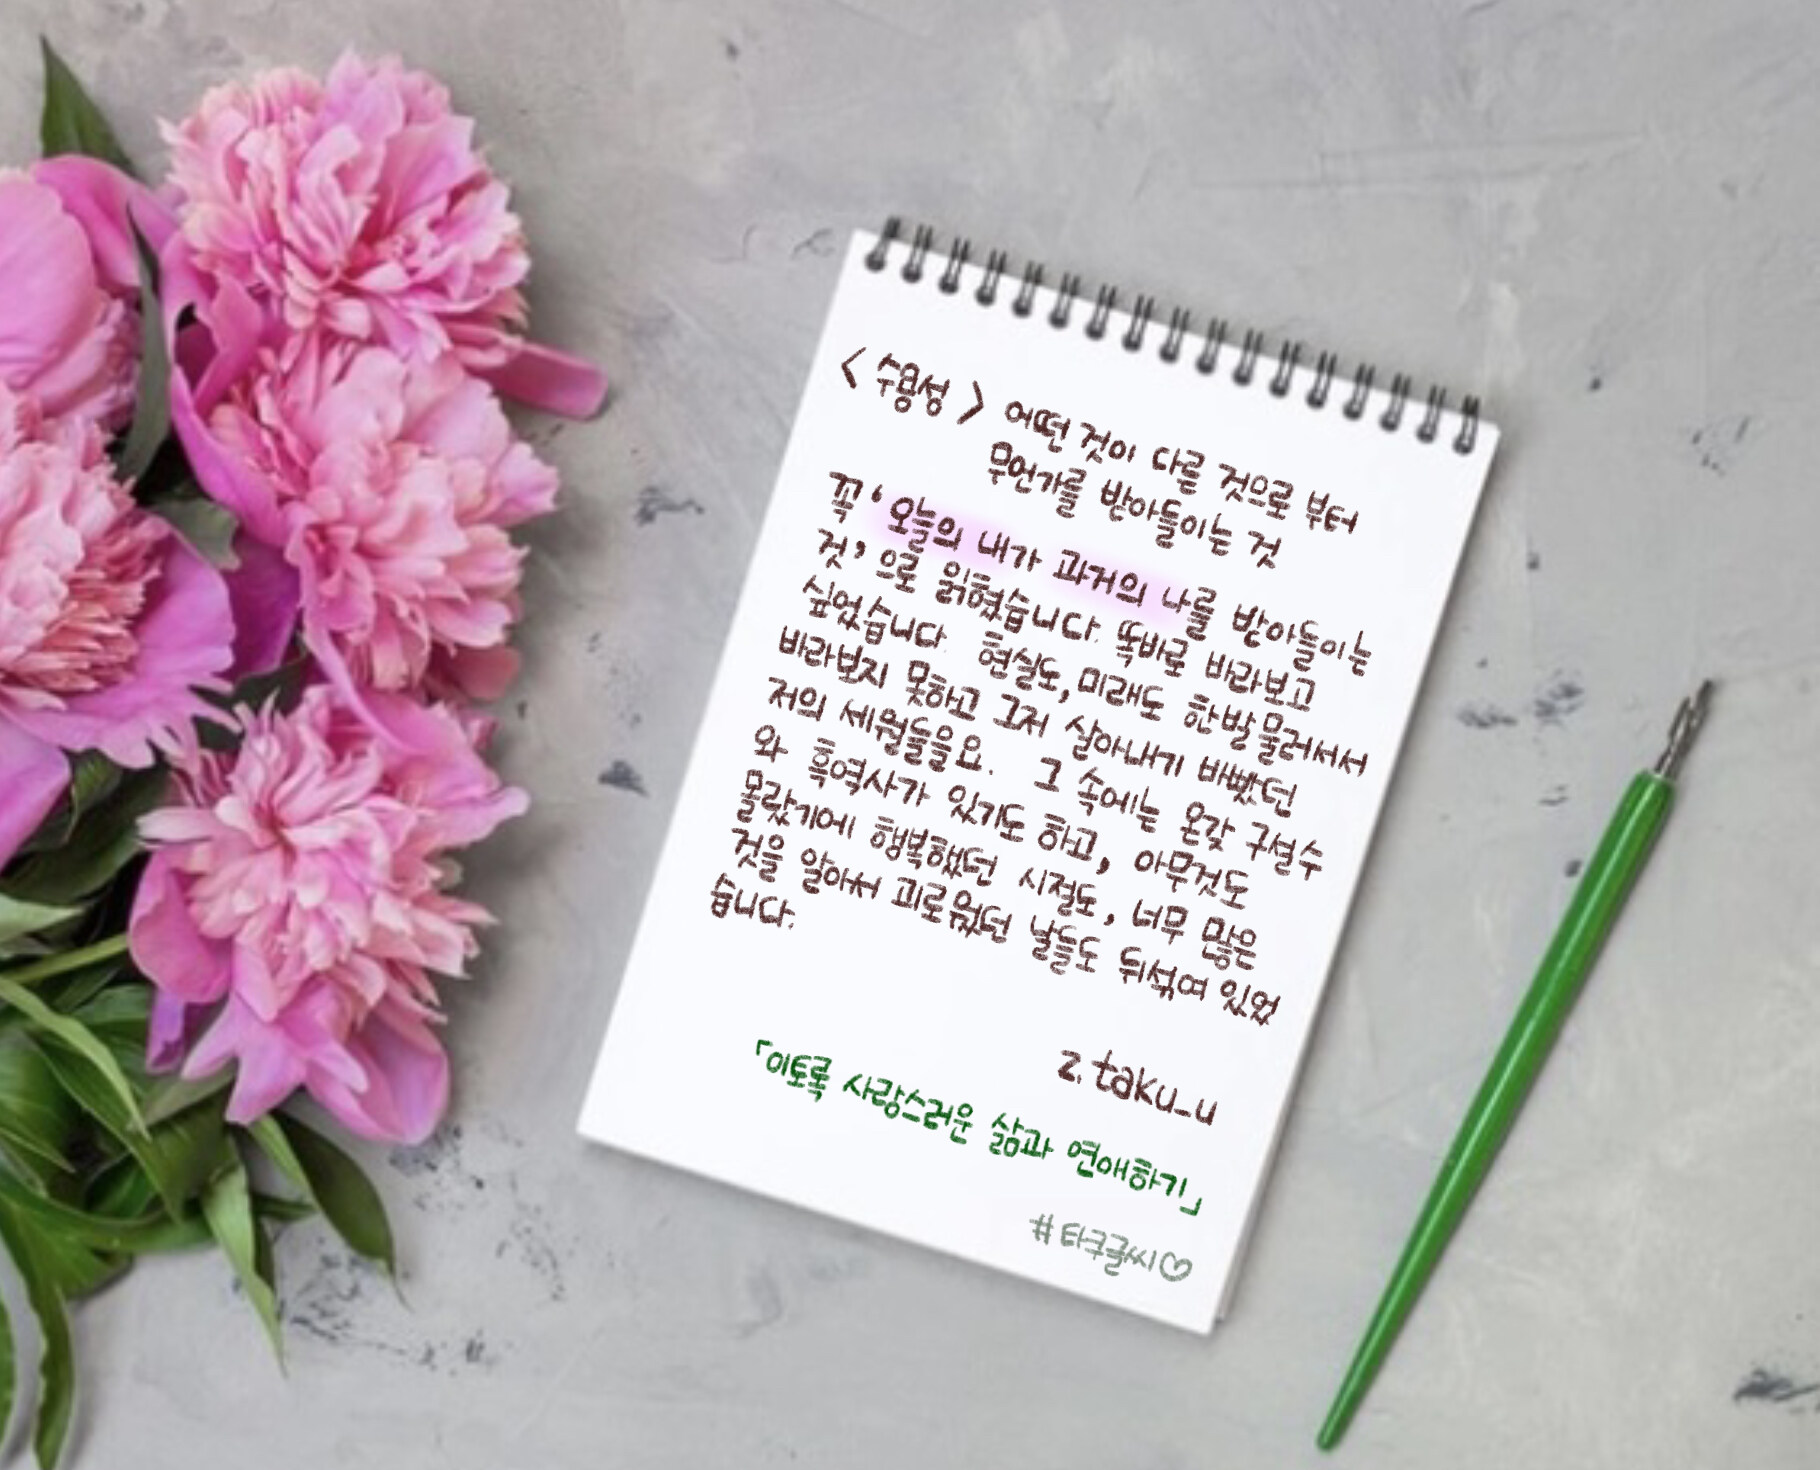 < 수용성 > 어떤 것이 다른 것으로 부터
무언가를 받아들이는 것
꼭 ‘오늘의 내가 과거의 나를 받아들이는
것’으로 읽혔습니다. 똑바로 바라보고
싶었습니다. 현실도, 미래도 한발 물러서서
바라보지 못하고 그저 살아내기 바빴던
저의 세월들을요. 그 속에는 온갖 구설수
와 흑역사가 있기도 하고, 아무것도
몰랐기에 행복했던 시절도, 너무 많은
것을 알아서 괴로웠던 날들도 뒤섞여 있었
습니다.
z. taku_u
「이토록 사랑스러운 삶과 연애하기」
#타쿠글씨♡